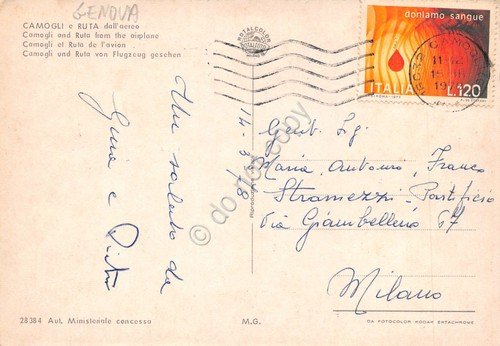 GENOVA
CAMOGLI e RUTA dall'aereo
Camogli and Ruta from the airplane
Camogli et Ruta de l'avion
Camogli und Ruta von Flugzeug gesehen
ROTALCOLOR
doniamo sangue
ITALIA L.120
CAMOGLI
14-3-78
Un saluto da
Gina e
Gent. Sig.
Maria, Antonio, Franco
Stramezzi - Pastificio
Via Giambellino 67
Milano
do not copy
28384 Aut. Ministeriale concessa
M.G.
DA FOTOCOLOR KODAK EKTACHROME